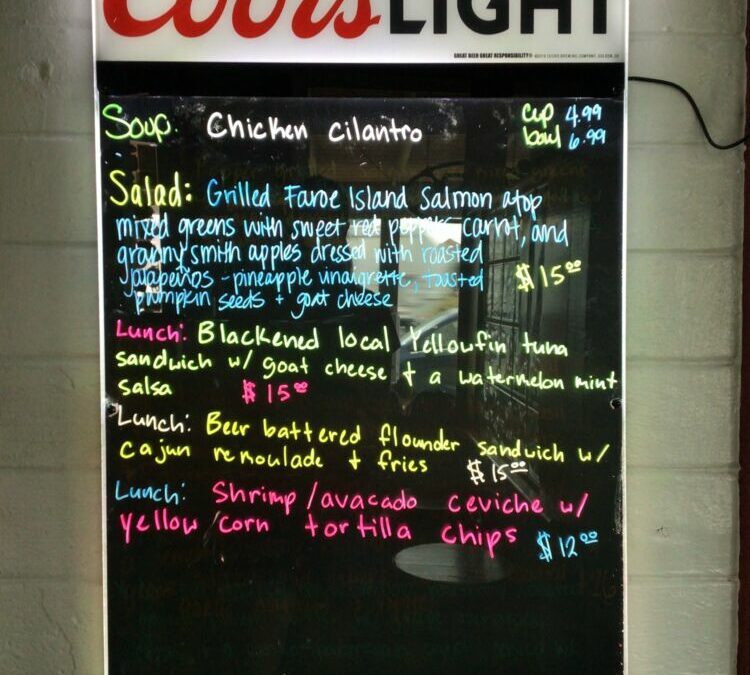 Coors LIGHT
GREAT BEER GREAT RESPONSIBILITY®
Soup. Chicken cilantro cup 4.99
bowl 6.99
Salad: Grilled Faroe Island Salmon atop
mixed greens with sweet red peppers, carrot, and
granny smith apples dressed with roasted
jalapeños - pineapple vinaigrette, toasted $15.00
pumpkin seeds + goat cheese
Lunch: Blackened local Yellowfin tuna
sandwich w/ goat cheese + a watermelon mint
salsa $15.00
Lunch: Beer battered flounder sandwich w/
cajun remoulade + fries $15.00
Lunch: Shrimp/avacado ceviche w/
yellow corn tortilla chips $12.00